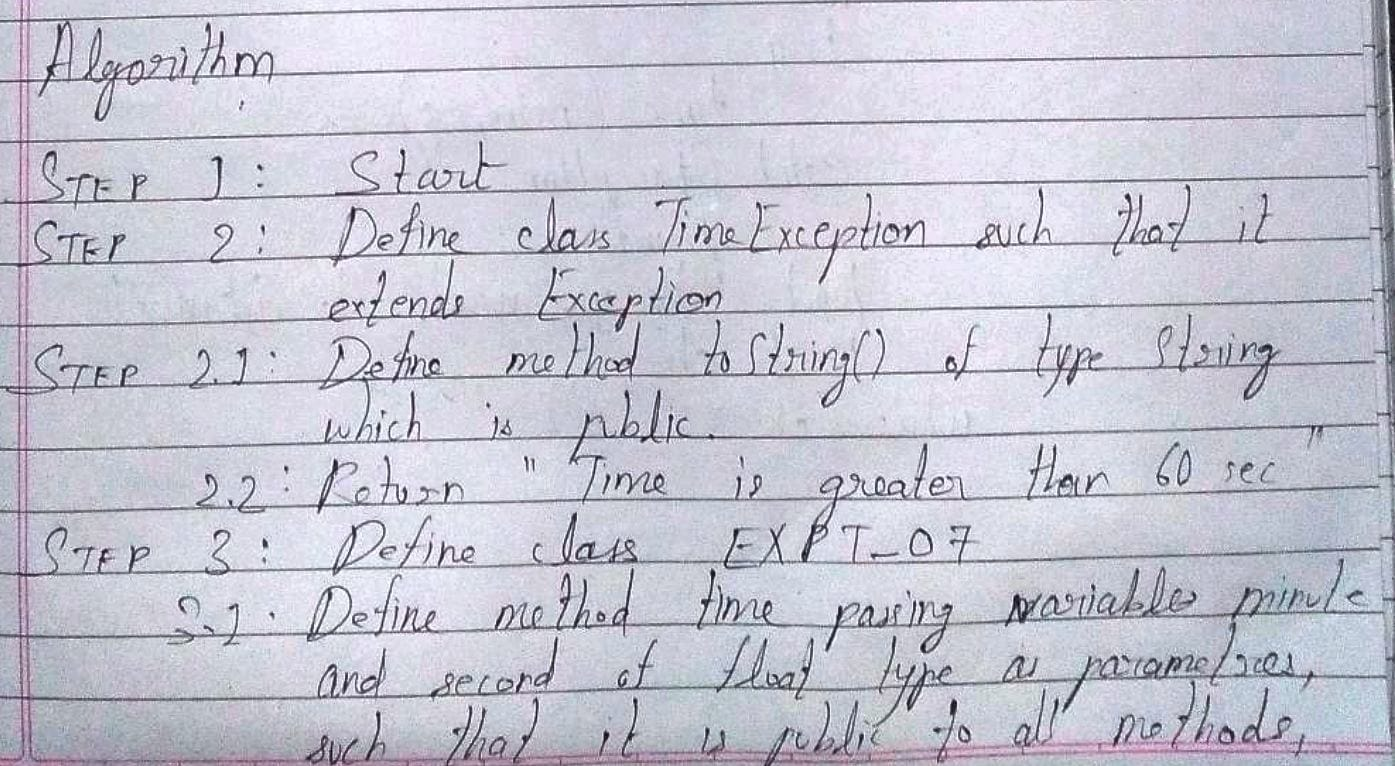 Algorithm
STEP 1: Start
STEP 2: Define class TimeException such that it
extends Exception
STEP 2.1: Define method toString() of type String
which is public.
2.2: Return "Time is greater than 60 sec"
STEP 3: Define class EXPT_07
3.1. Define method time passing variables minute
and second of float type as parametres,
such that it is public to all methods,